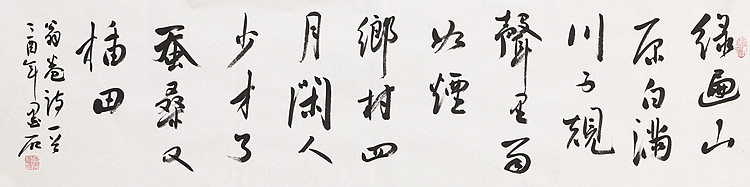 绿遍山
原白滿
川子規
聲里雨
如煙
鄉村四
月閑人
少才了
蚕桑又
插田
翁卷诗一首
丁酉年墨石